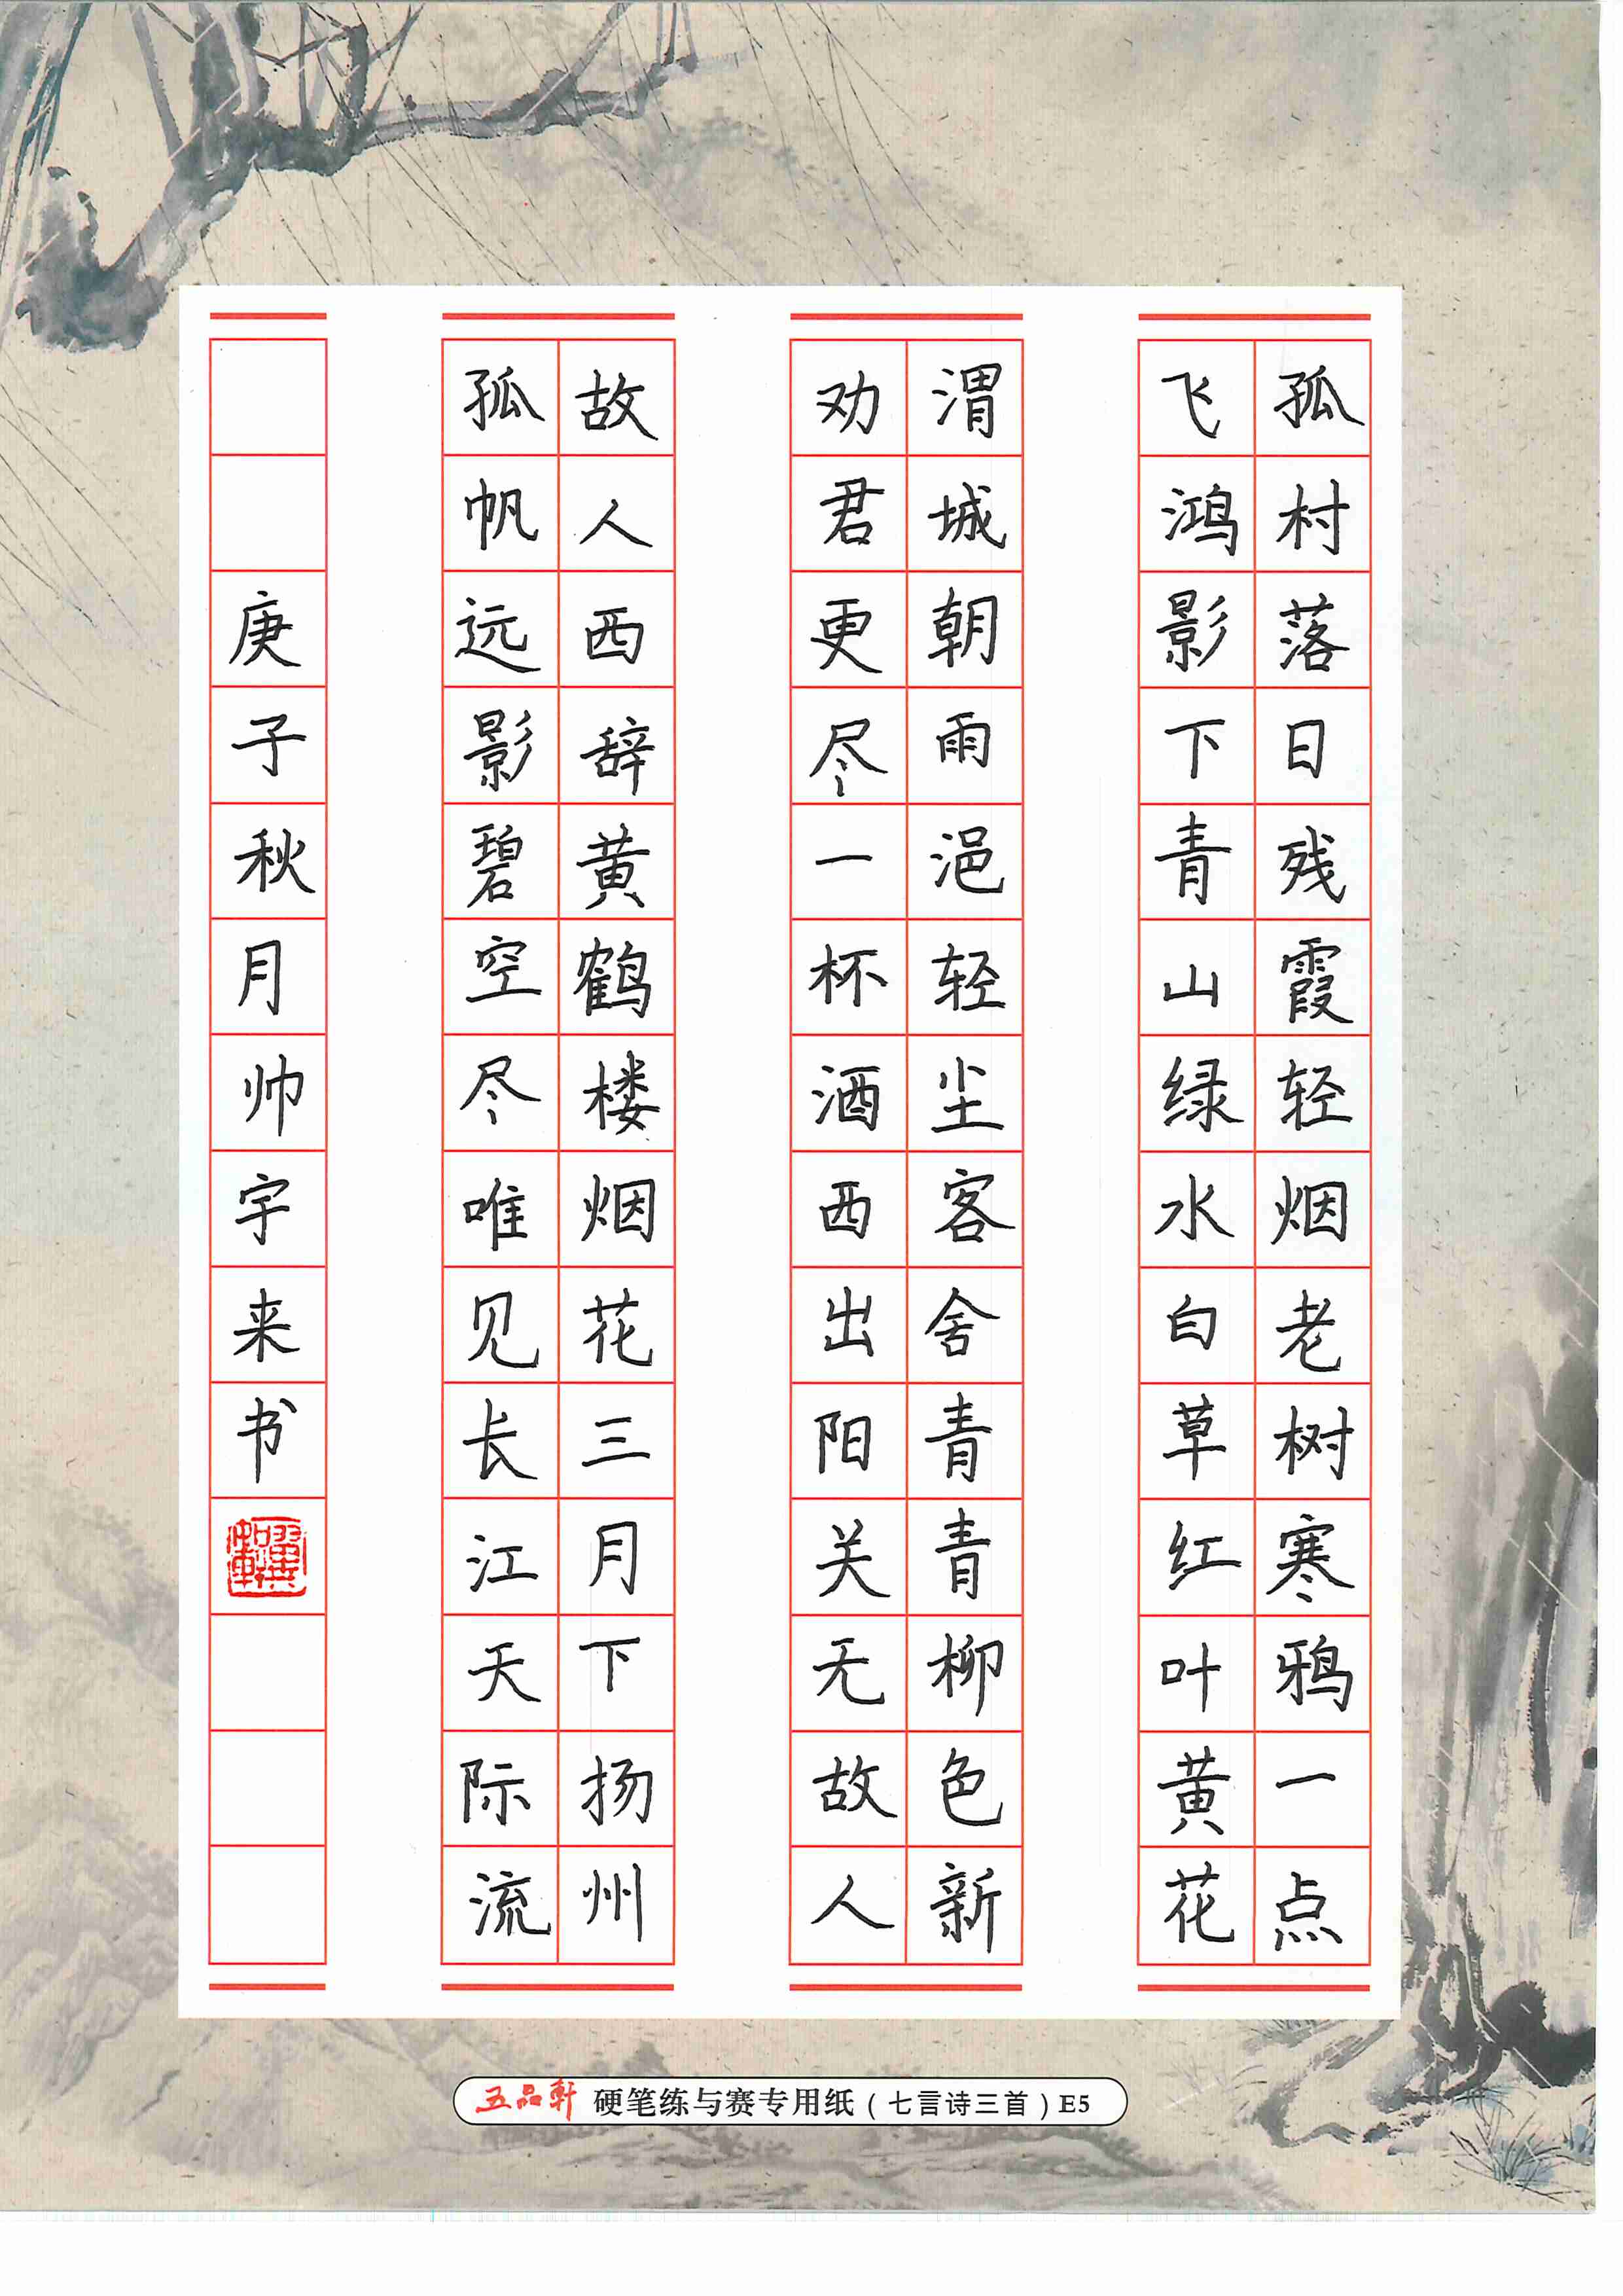 孤村落日残霞轻烟老树寒鸦一点
飞鸿影下青山绿水白草红叶黄花
渭城朝雨浥轻尘客舍青青柳色新
劝君更尽一杯酒西出阳关无故人
故人西辞黄鹤楼烟花三月下扬州
孤帆远影碧空尽唯见长江天际流
庚子秋月帅宇来书
五品軒 硬笔练与赛专用纸(七言诗三首)E5